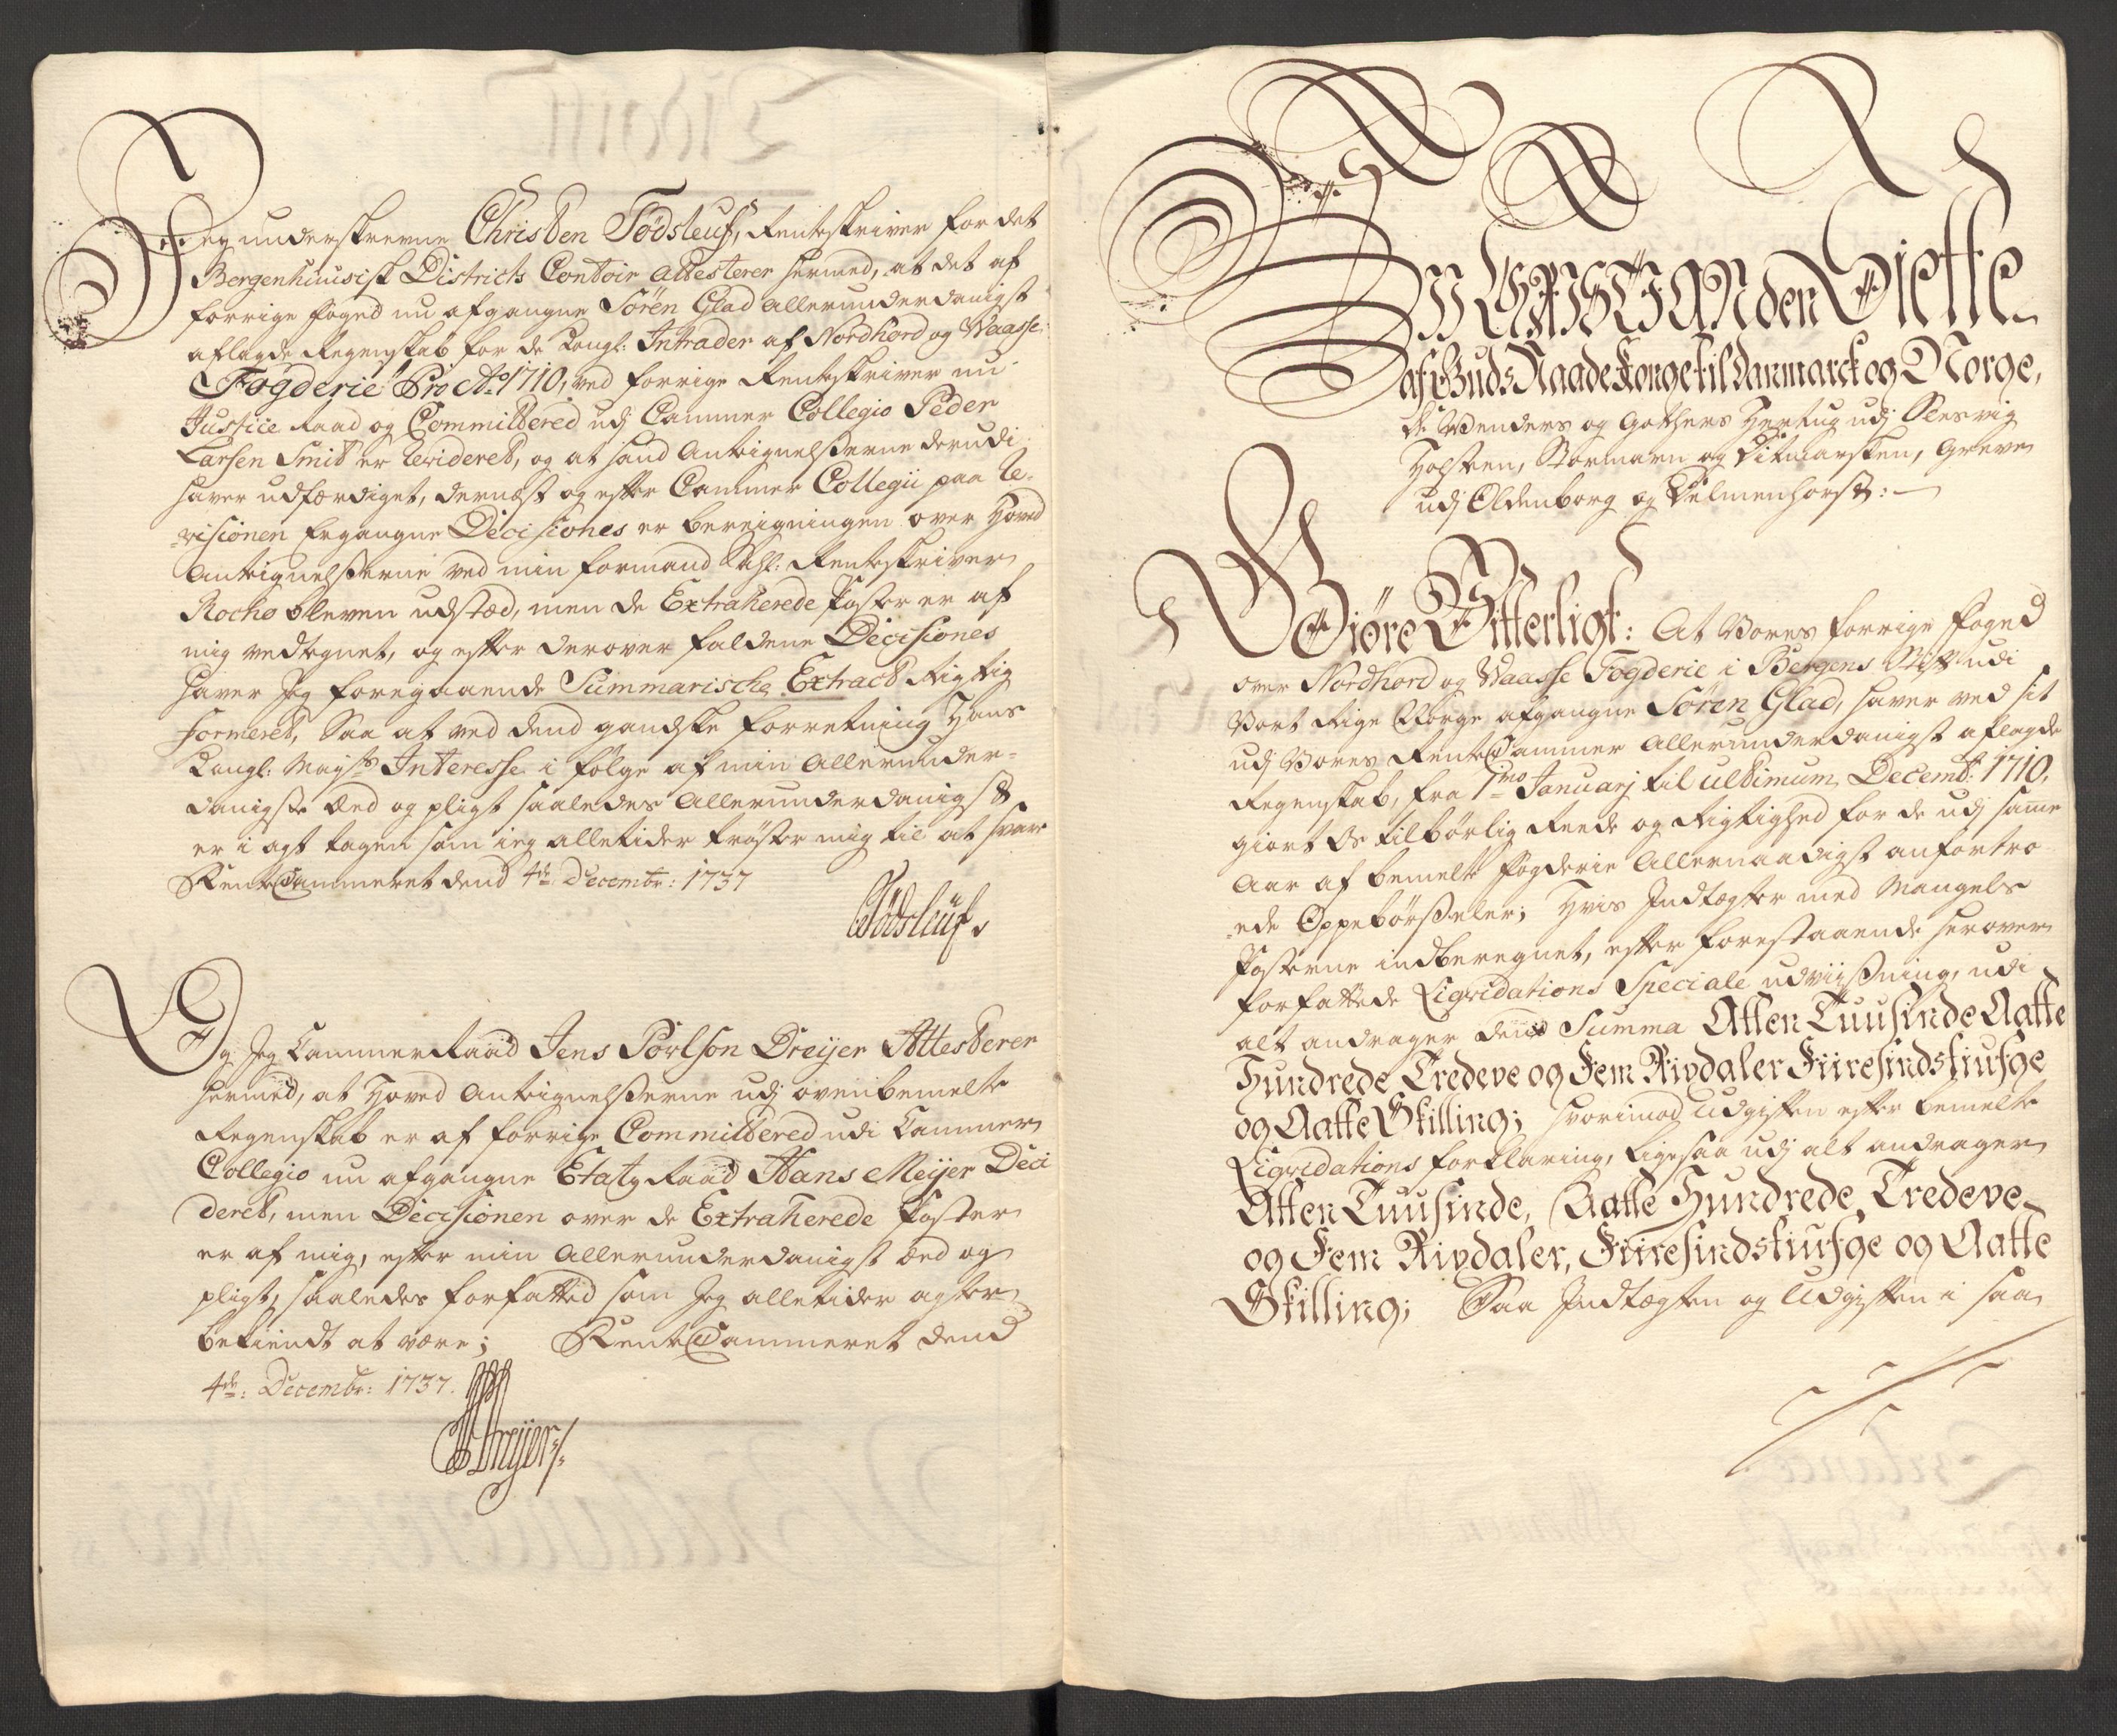 Jeg underskrevne Christen Tödsleuf, Renteskriver for det
Bergenhuusisk Districts Contoir Attesterer hermed, at det af
forrige foged nu afgangne Sören Glad allerunderdanigst
aflagde Regenskab for de Kongl: Intrader af Nordhord og Waasse
Fögderie Pro Ao 1710, ved forrige Renteskriver nu
Justice Raad og Committered udj Cammer Collegio Peder
Larsen Smit er Revideret, og at hand Antegnelßerne derudi
haver udfærdiget, dernæst og efter Cammer Collegii paa Re-
-visionen Ergangne Decisiones er beregningen over Hoved
Antegnelßerne ved min formand Sahl: Renteskriver
Rocho bleven udstæd, men de Extraherede Poster er af
mig vedtegnet, og efter derover faldene Decisiones
haver Jeg foregaaende Summarische Extract Rigtig
formeret, Saa at ved dend gandske forretning Hans
Kongl: Mayts Interesse i følge af min Allerunder-
danigste Eed og pligt saaledes Allerunderdanigst
er i agt tagen som ieg alletider trøster mig til at svare
RenteCammeret dend 4de Decembr: 1737
Tödsleuf.
Og Jeg CammerRaad Jens Povlson Dreijer Attesterer
hermed, at Hoved Antegnelßerne udj ovenbemelte
Regenskab er af forrige Committered udi Cammer
Collegio nu afgangne Etatz Raad Hans Meijer Deci
deret, men Decisionen over de Extraherede Poster
er af mig, efter min Allerunderdanigst Eed og
pligt, saaledes forfatted som Jeg alletider agter
bekiendt at være; RenteCammeret dend
4de: Decembr: 1737.
Dreijer
Wy CHRISTIAN den Siette
af Guds Naade Konge til Danmarck og Norge,
de Wenders og Gothers Hertug udj Slesvig
Holsten, Stormarn og Ditmarsken, Greve
udj Oldenborg og Delmenhorst:
Giøre Vitterligt: At Vores forrige foged
over Nordhord og Waasse Fögderie i Bergens Stift udi
Vort Rige Norge afgangne Sören Glad, haver ved sit
udj Vores RenteCammer Allerunderdanigst aflagde
Regenskab, fra 1mo Januarj til ultimum Decemb: 1710,
giort Os tilbørlig Reede og Rigtighed for de udj same
Aar af bemelte fogderie Allernaadigst anfortro-
-ede Oppebørßeler; Hvis Indtægter med Mangels
Posterne indberegnet, efter forestaaende herover
forfattede Liqvidations Speciale udviißning, udi
alt andrager dend Summa Atten Tuusinde Aatte
Hundrede Tredeve og Fem Rixdaler Fiiresindstiufge
og Aatte Skilling; hvorimod Udgiften efter bemelte
Liqvidations forklaring, ligesaa udj alt andrager
Atten Tuusinde, Aatte Hundrede Tredeve
og Fem Rixdaler, Fiiresindstiufge og Aatte
Skilling; Saa Indtægten og Udgiften i saa